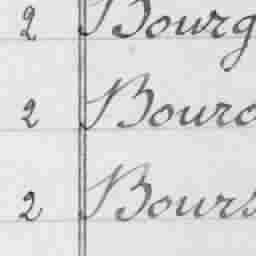 2 Bourg
2 Bourc
2 Bours